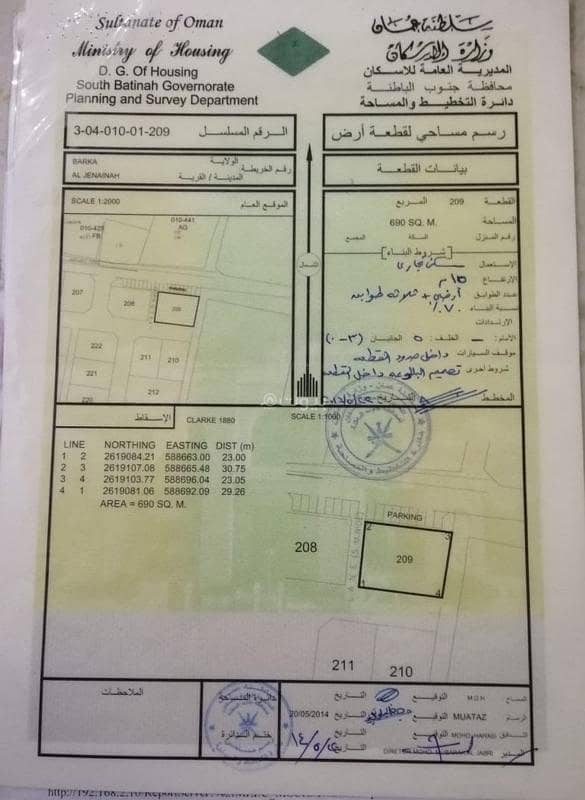 Sultanate of Oman
Ministry of Housing
D. G. Of Housing
South Batinah Governorate
Planning and Survey Department
سلطنة عمان
وزارة الإسكان
المديرية العامة للاسكان
محافظة جنوب الباطنة
دائرة التخطيط والمساحة
3-04-010-01-209 الرقم المسلسل
رسم مساحي لقطعة أرض
BARKA الولاية
رقم الخريطة
AL JENAINAH المدينة / القرية
بيانات القطعة
SCALE 1:2000 الموقع العام
010-441
AG
FB
207
208
209
222
221
220
211
210
212
الشمال
القطعة 209 المربع
المساحة 690 SQ. M.
رقم المنزل السكة المجمع
شروط البناء
الاستعمال سكني تجاري
الارتفاع ١٥م
عدد الطوابق أرضي + ثلاثة طوابق
نسبة البناء ٧٠٪
الارتدادات
الأمام: الخلف: ٥ الجانبان (٣-٠)
موقف السيارات داخل حدود القطعة
شروط اخرى تصميم البالوعه داخل القطعة
المخطط التاريخ
الاسقاط CLARKE 1880 SCALE 1:1000
LINE NORTHING EASTING DIST (m)
1 2 2619084.21 588663.00 23.00
2 3 2619107.08 588665.48 30.75
3 4 2619103.77 588696.04 23.05
4 1 2619081.06 588692.09 29.26
AREA = 690 SQ. M.
PARKING
208
209
2
3
1
4
LANE
211
210
الملاحظات
دائرة المساحة
ختم الدائرة
المساح M.O.H التوقيع التاريخ
الرسام MUATAZ التوقيع التاريخ 20/05/2014
التدقيق التوقيع التاريخ
المدير التاريخ